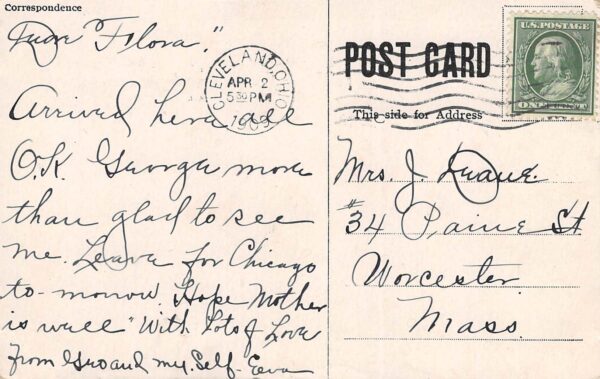 Correspondence
Dear "Flora."
Arrived here all
O.K. George more
than glad to see
me. Leave for Chicago
to-morrow. Hope Mother
is well "With lots of Love
From Geo and my. Self-
CLEVELAND, OHIO
APR 2
5 30 PM
1909
POST CARD
This side for Address
U.S. POSTAGE
ONE CENT
Mrs. J. Deane.
#34 Paine St
Worcester
Mass.